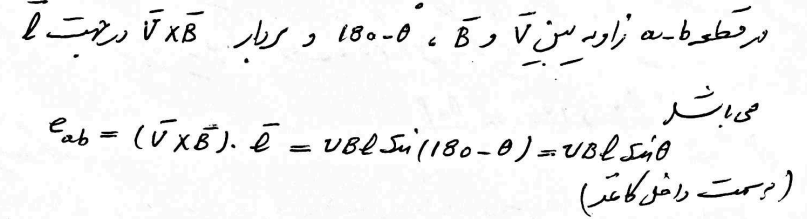 در قطعه a-b زاویه بین V̄ و B̄ ، 180-θ° و بردار V̄×B̄ در جهت l̄
می باشد
e_ab = (V̄×B̄). l̄ = υBl Sin(180-θ) = υBl Sinθ
(به سمت داخل کاغذ)